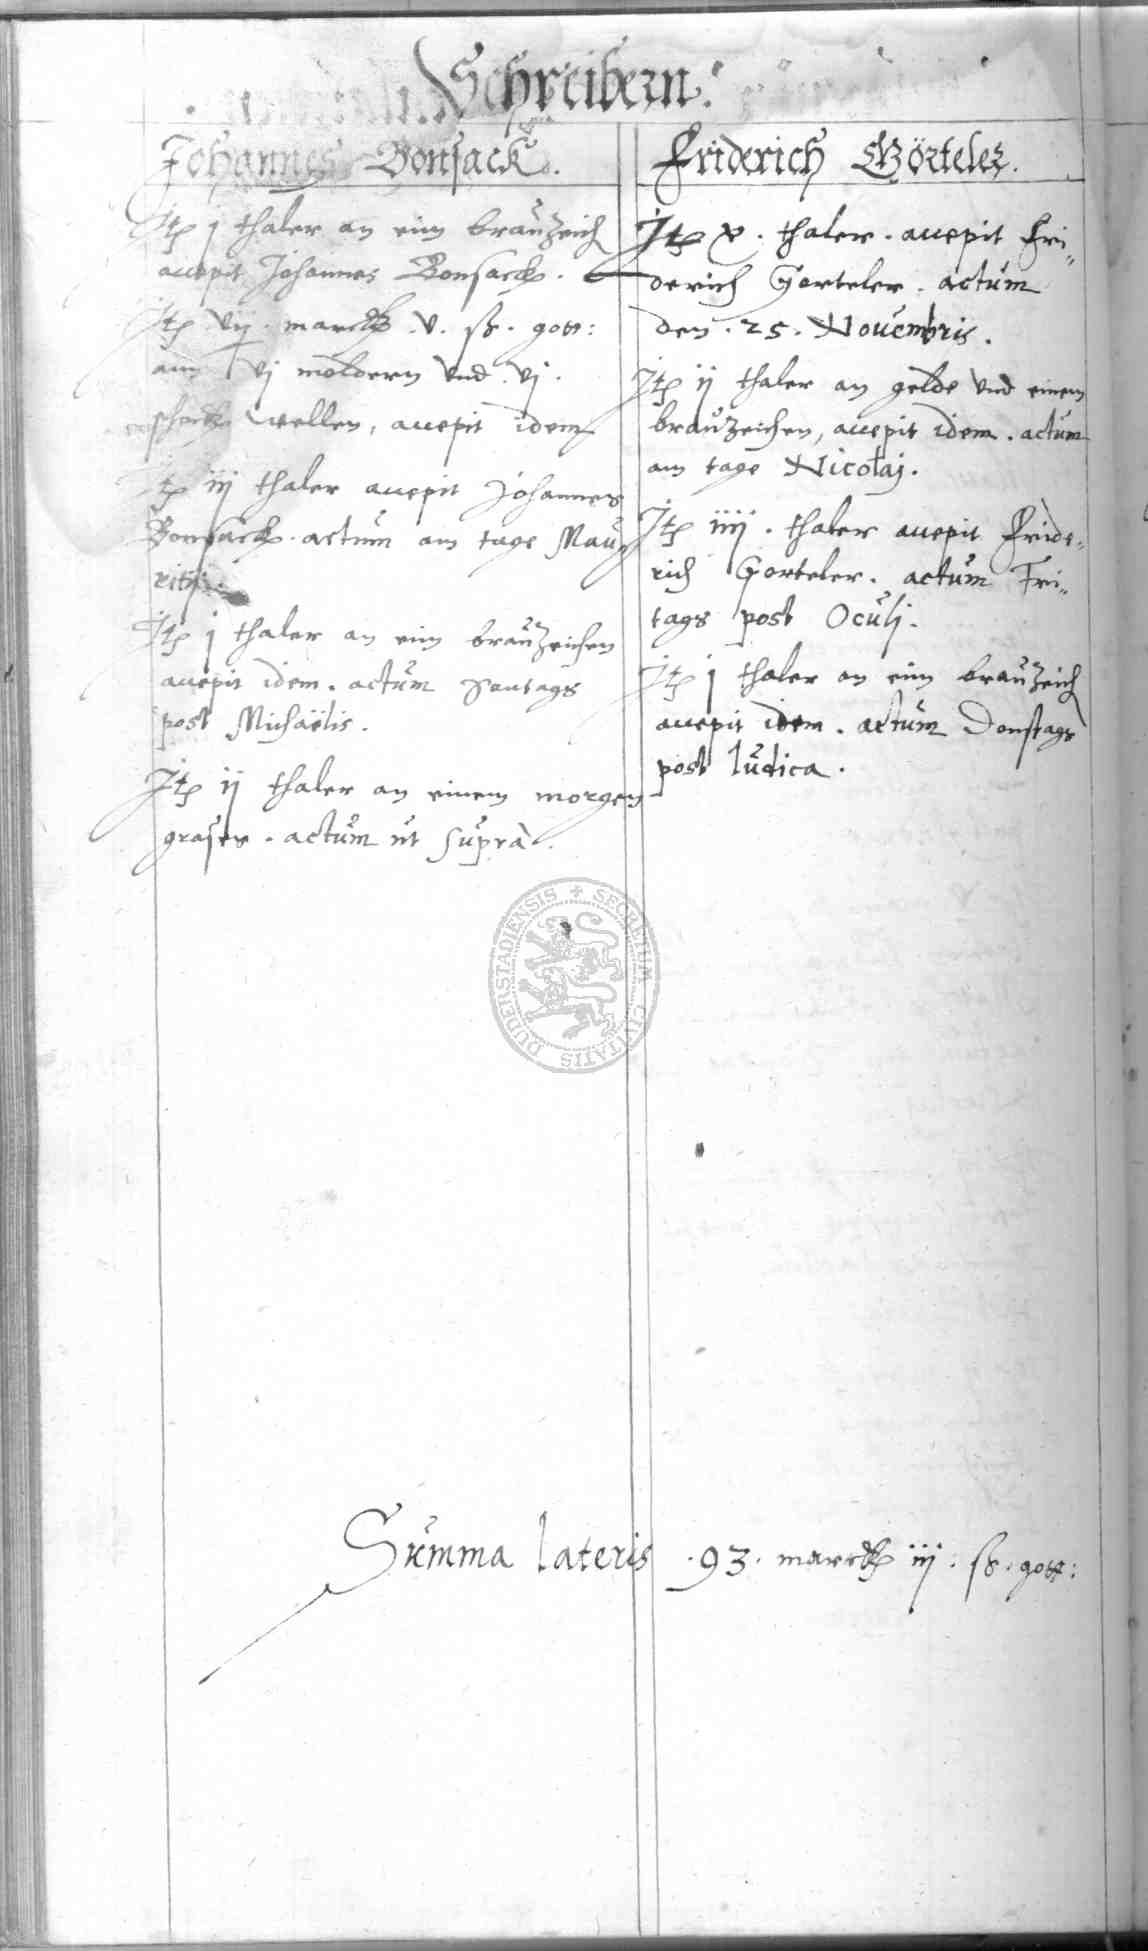 Schreibern.
Johannes Bonsack.
Itp j thaler an eim brauzeich
accepit Johannes Bonsack.
Itp vij. marck .v. ß. gott:
ann vj moldern vnd .vj.
schock wellen, accepit idem
Itp iij thaler accepit Johannes
Bonsack. actum am tage Mau
ritij.
Itp j thaler an eim brauzeichen
accepit idem. actum Sontags
post Michaëlis.
Itp ij thaler an einem morgen
grases. actum ut supra.
Friderich Görteler.
Itp v. thaler. accepit Fri„
derich Gorteler. actum
den .25. Novembris.
Itp ij thaler an gelde vnd einem
brauzeichen, accepit idem. actum
am tage Nicolaj.
Itp iiij. thaler accepit Fride„
rich Gorteler. actum Fri„
tags post Oculj.
Itp j thaler an eim brauzeich
accepit idem. actum Donstags
post Iudica.
SECRETUM CIVITATIS DUDERSTADIENSIS
Summa lateris .93. marck iij. ß. gott: